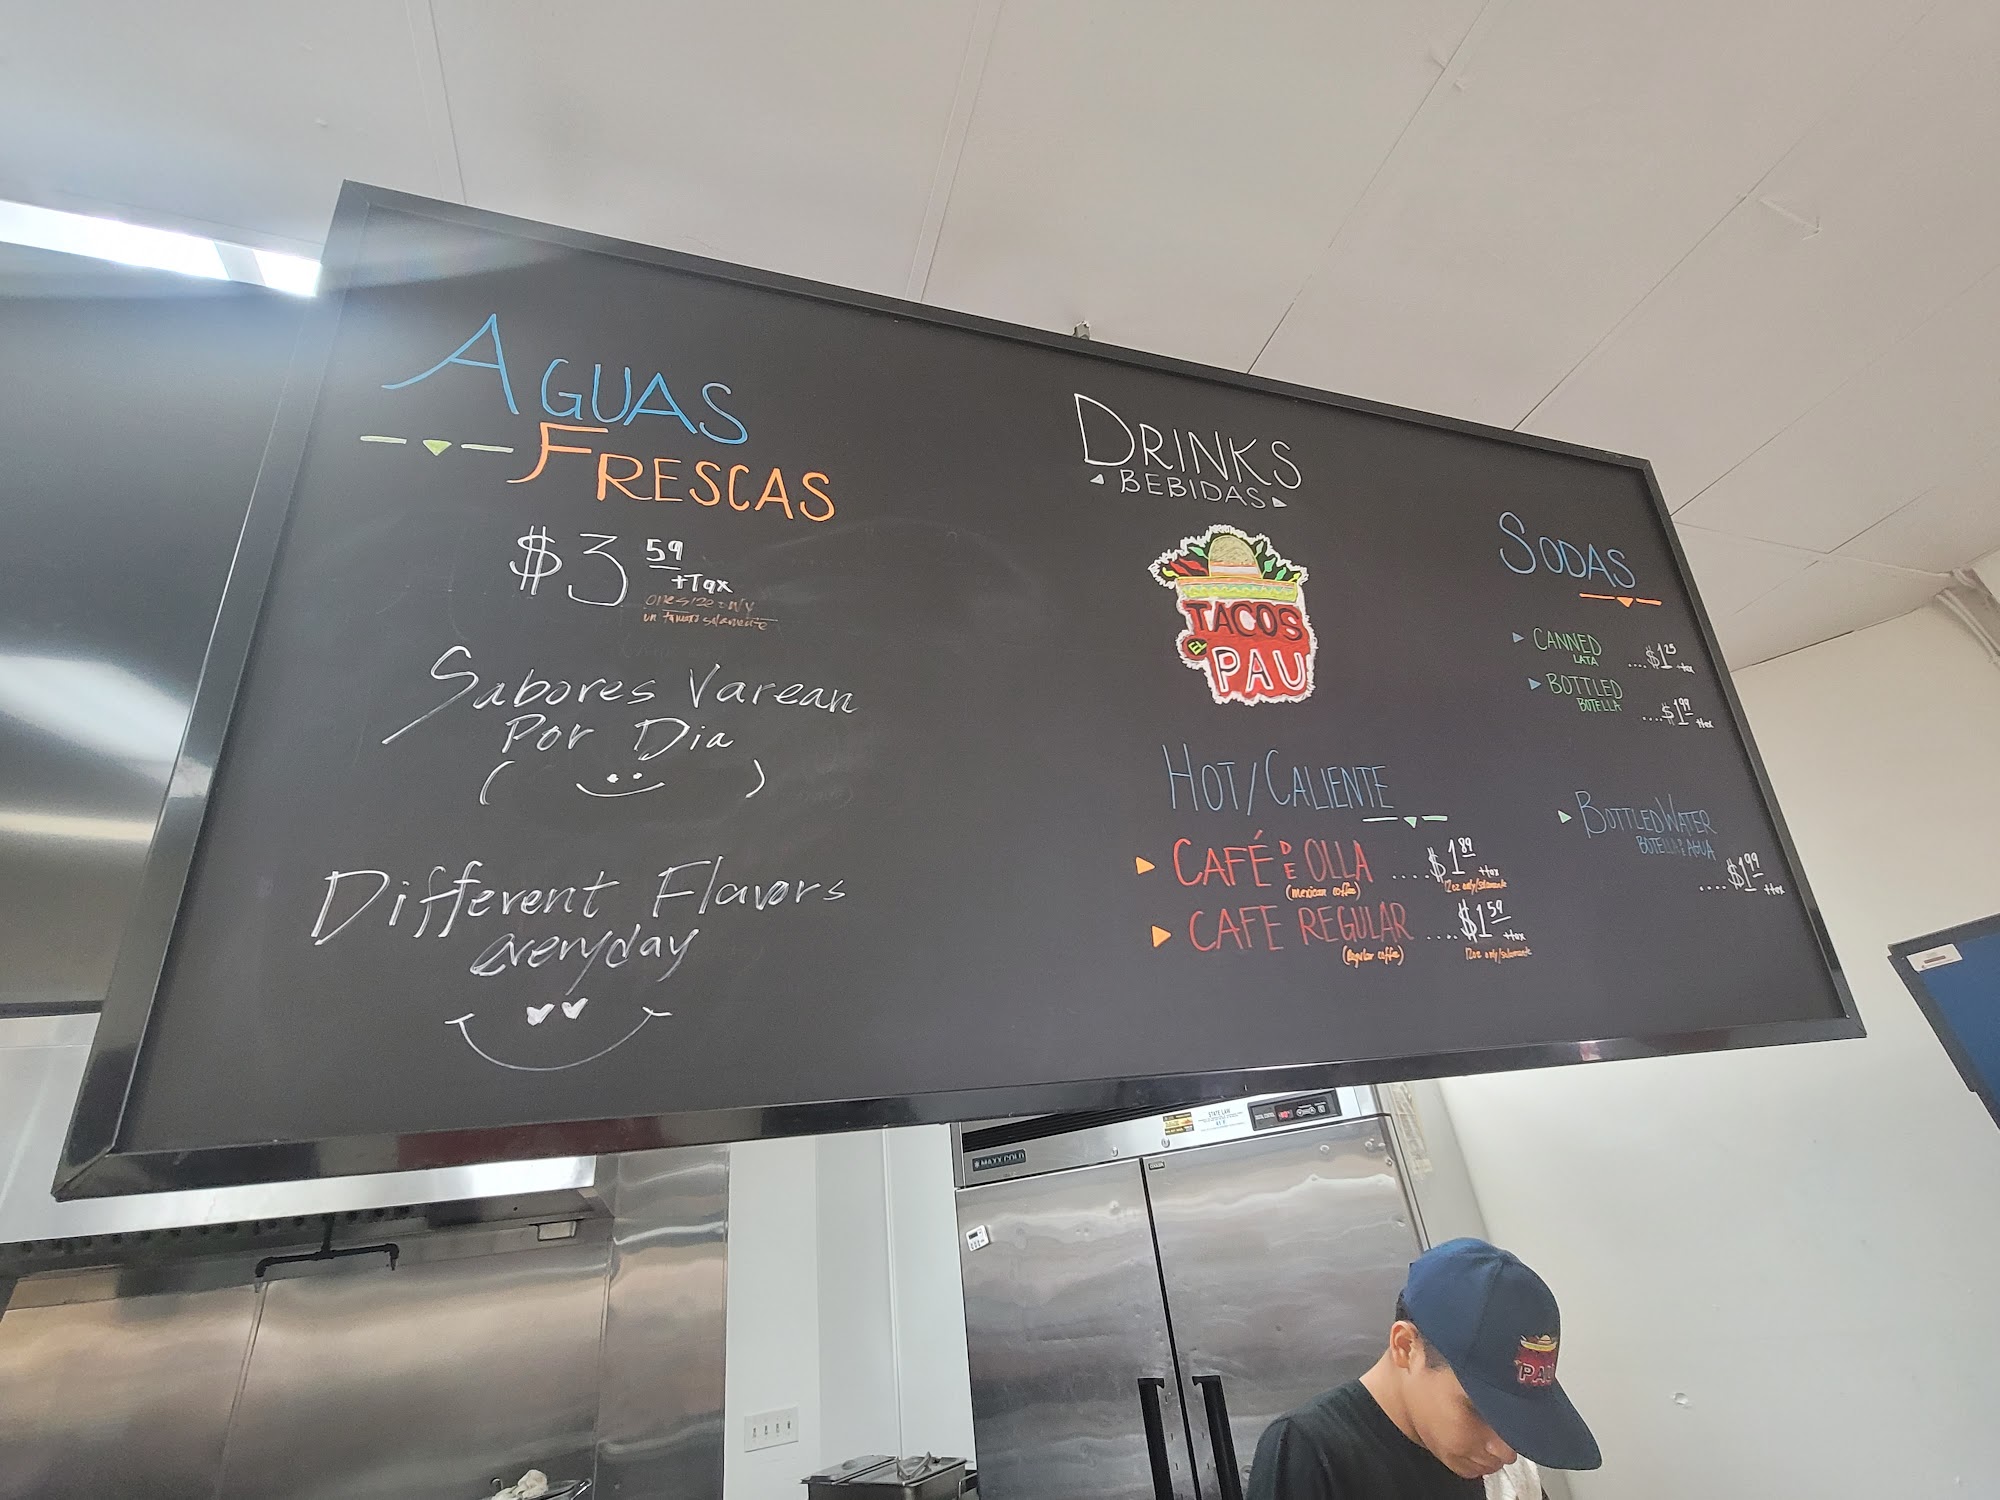 AGUAS
FRESCAS
$3 59
+Tax
one size only
un tamano solamente
Sabores Varean
Por Dia
Different Flavors
everyday
DRINKS
BEBIDAS
TACOS
EL
PAU
HOT/CALIENTE
CAFÉ DE OLLA ....$1 89 +tax
(mexican coffee) 12oz only/solamente
CAFE REGULAR ....$1 59 +tax
(Regular coffee) 12oz only/solamente
SODAS
CANNED
LATA ....$1 25 +tax
BOTTLED
BOTELLA ....$1 99 +tax
BOTTLED WATER
BOTELLA DE AGUA
....$1 99 +tax
MAXX COLD
STATE LAW
PAU